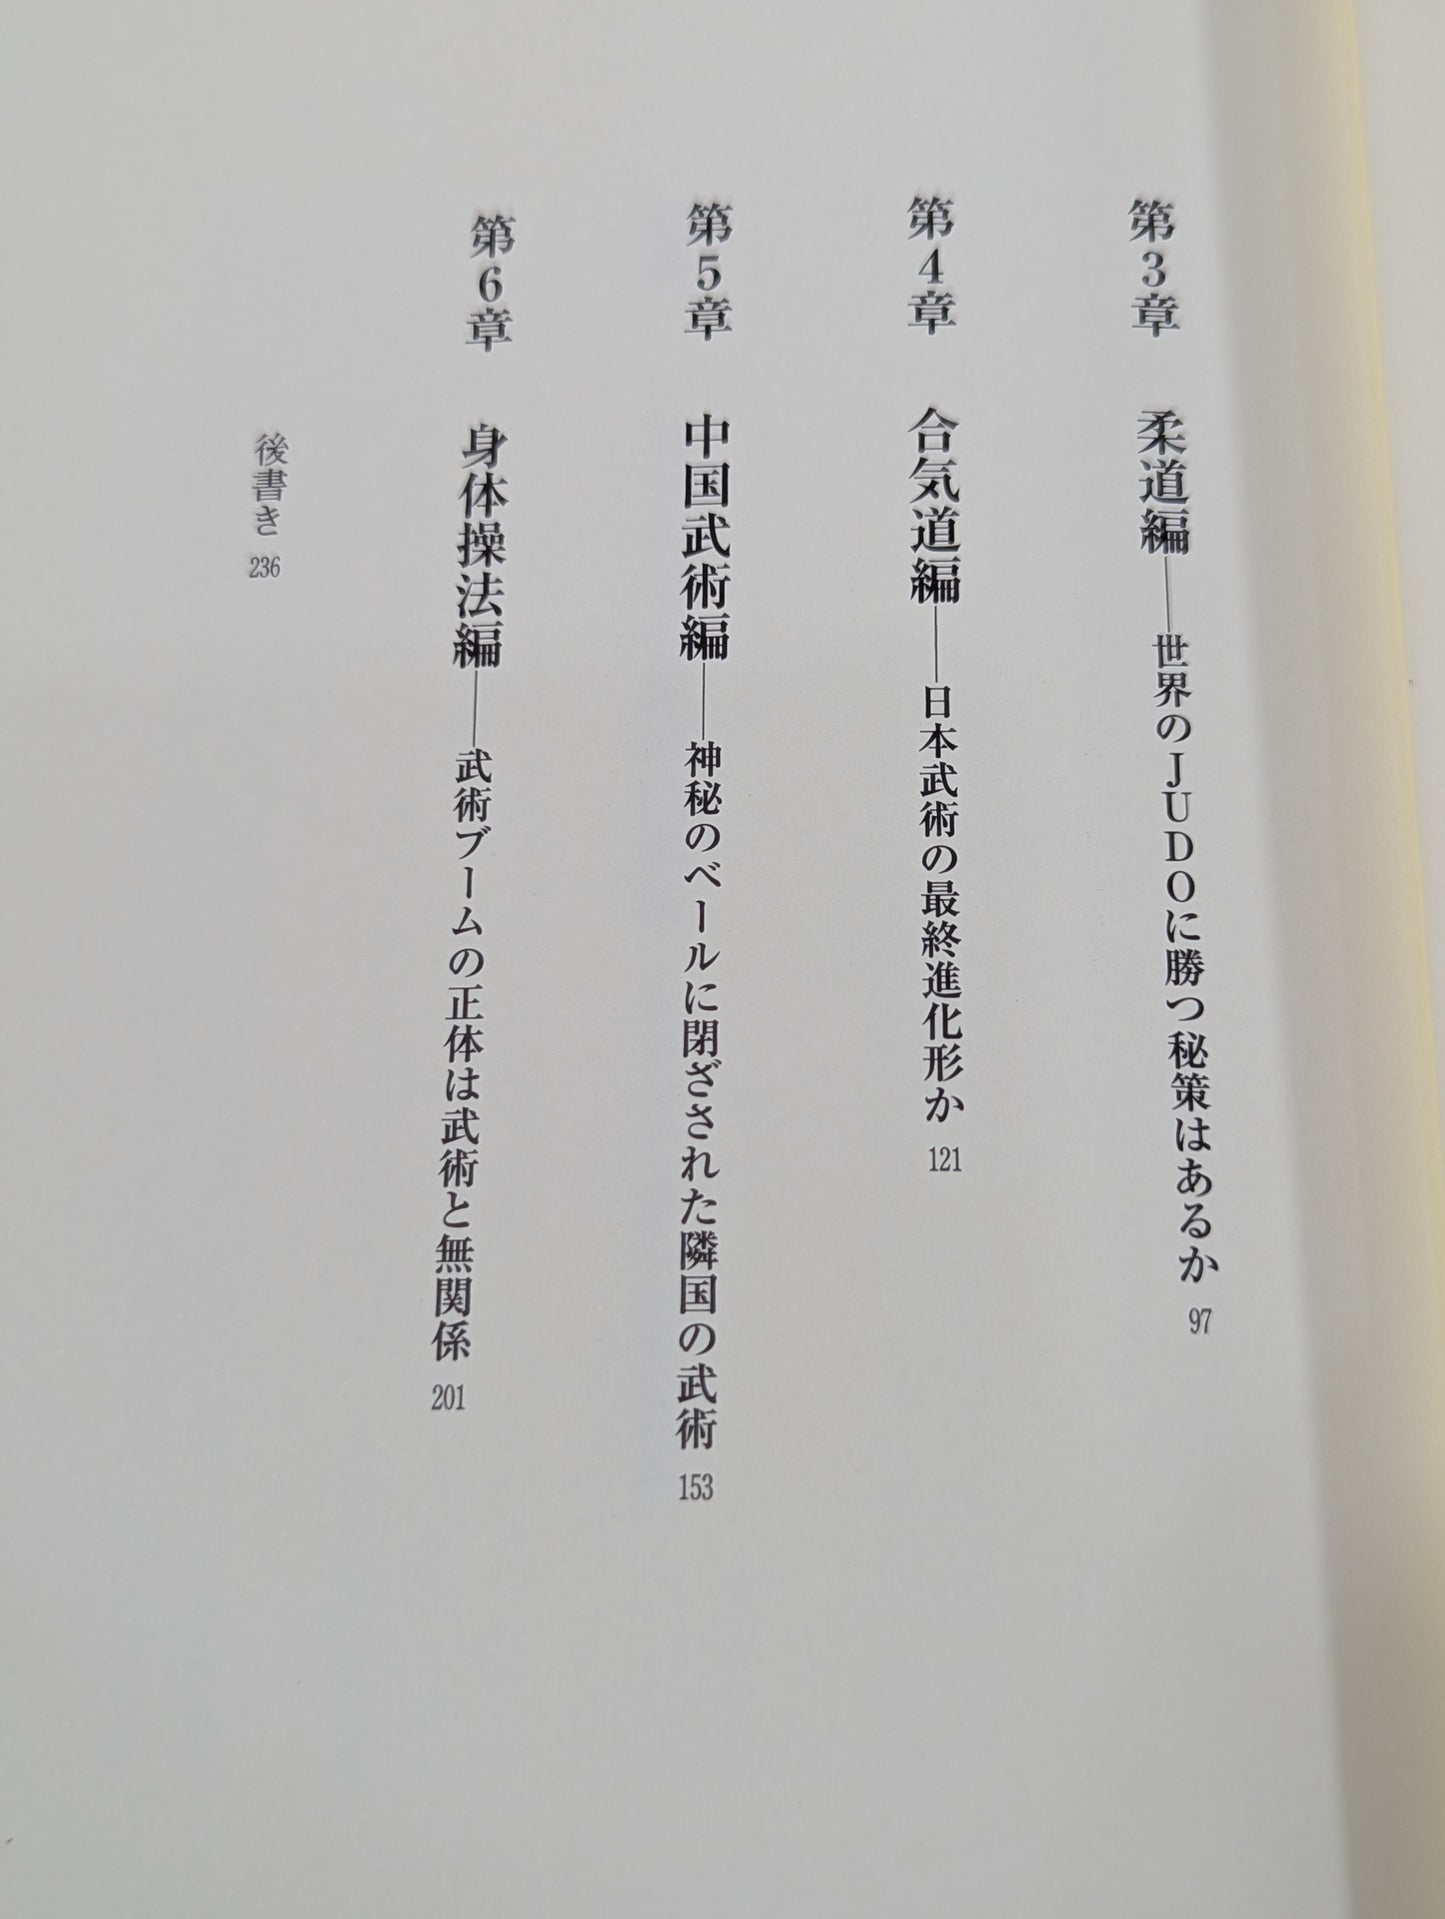 第3章 柔道編――世界のJUDOに勝つ秘策はあるか 97
第4章 合気道編――日本武術の最終進化形か 121
第5章 中国武術編――神秘のベールに閉ざされた隣国の武術 153
第6章 身体操法編――武術ブームの正体は武術と無関係 201
後書き 236